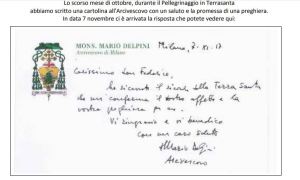 Lo scorso mese di ottobre, durante il Pellegrinaggio in Terrasanta
abbiamo scritto una cartolina all'Arcivescovo con un saluto e la promessa di una preghiera.
In data 7 novembre ci è arrivata la risposta che potete vedere qui:
MONS. MARIO DELPINI
Arcivescovo di Milano
Milano, 7. XI. 17
Carissimo don Federico,
ho ricevuto il ricordo dalla Terra Santa
che mi conferma il vostro affetto e la
vostra preghiera per me.
Vi ringrazio e vi benedico
con un caro saluto
+ Mario Delpini
Arcivescovo